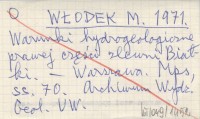 WŁODEK M. 1971.
Warunki hydrogeologiczne
prawej części zlewni Biał-
ki. — Warszawa. Mps,
ss. 70. Archiwum Wydz.
Geol. UW.